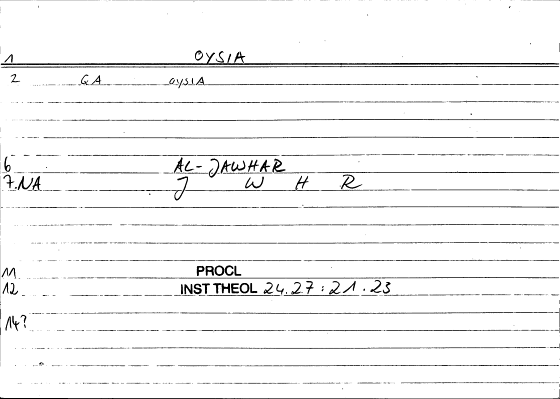 1 OYSIA
2 GA OYSIA
6 AL-JAWHAR
7.NA J W H R
11 PROCL
12 INST THEOL 24.27:21.23
14?